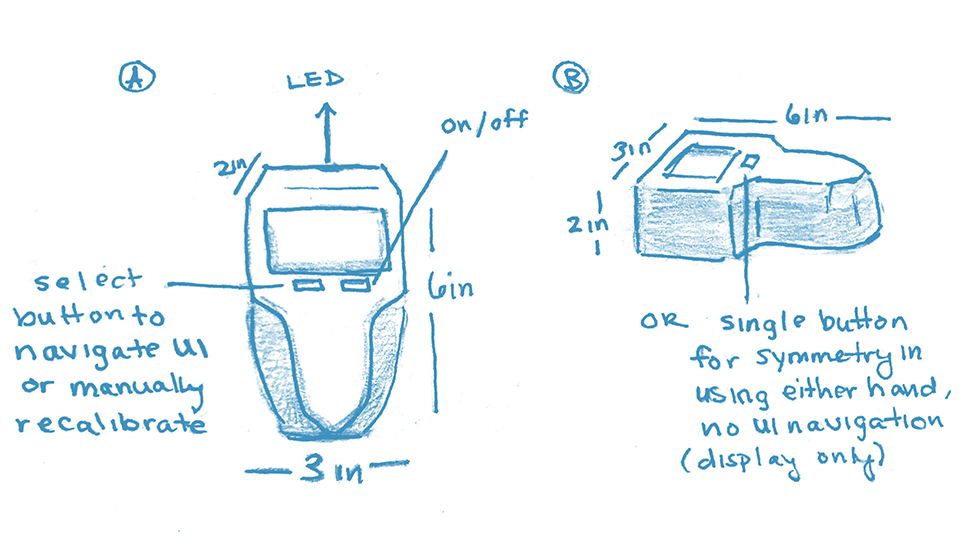 A
LED
2in
on/off
6in
select
button to
navigate UI
or manually
recalibrate
3 in
B
6in
3in
2in
OR single button
for symmetry in
using either hand,
no UI navigation
(display only)